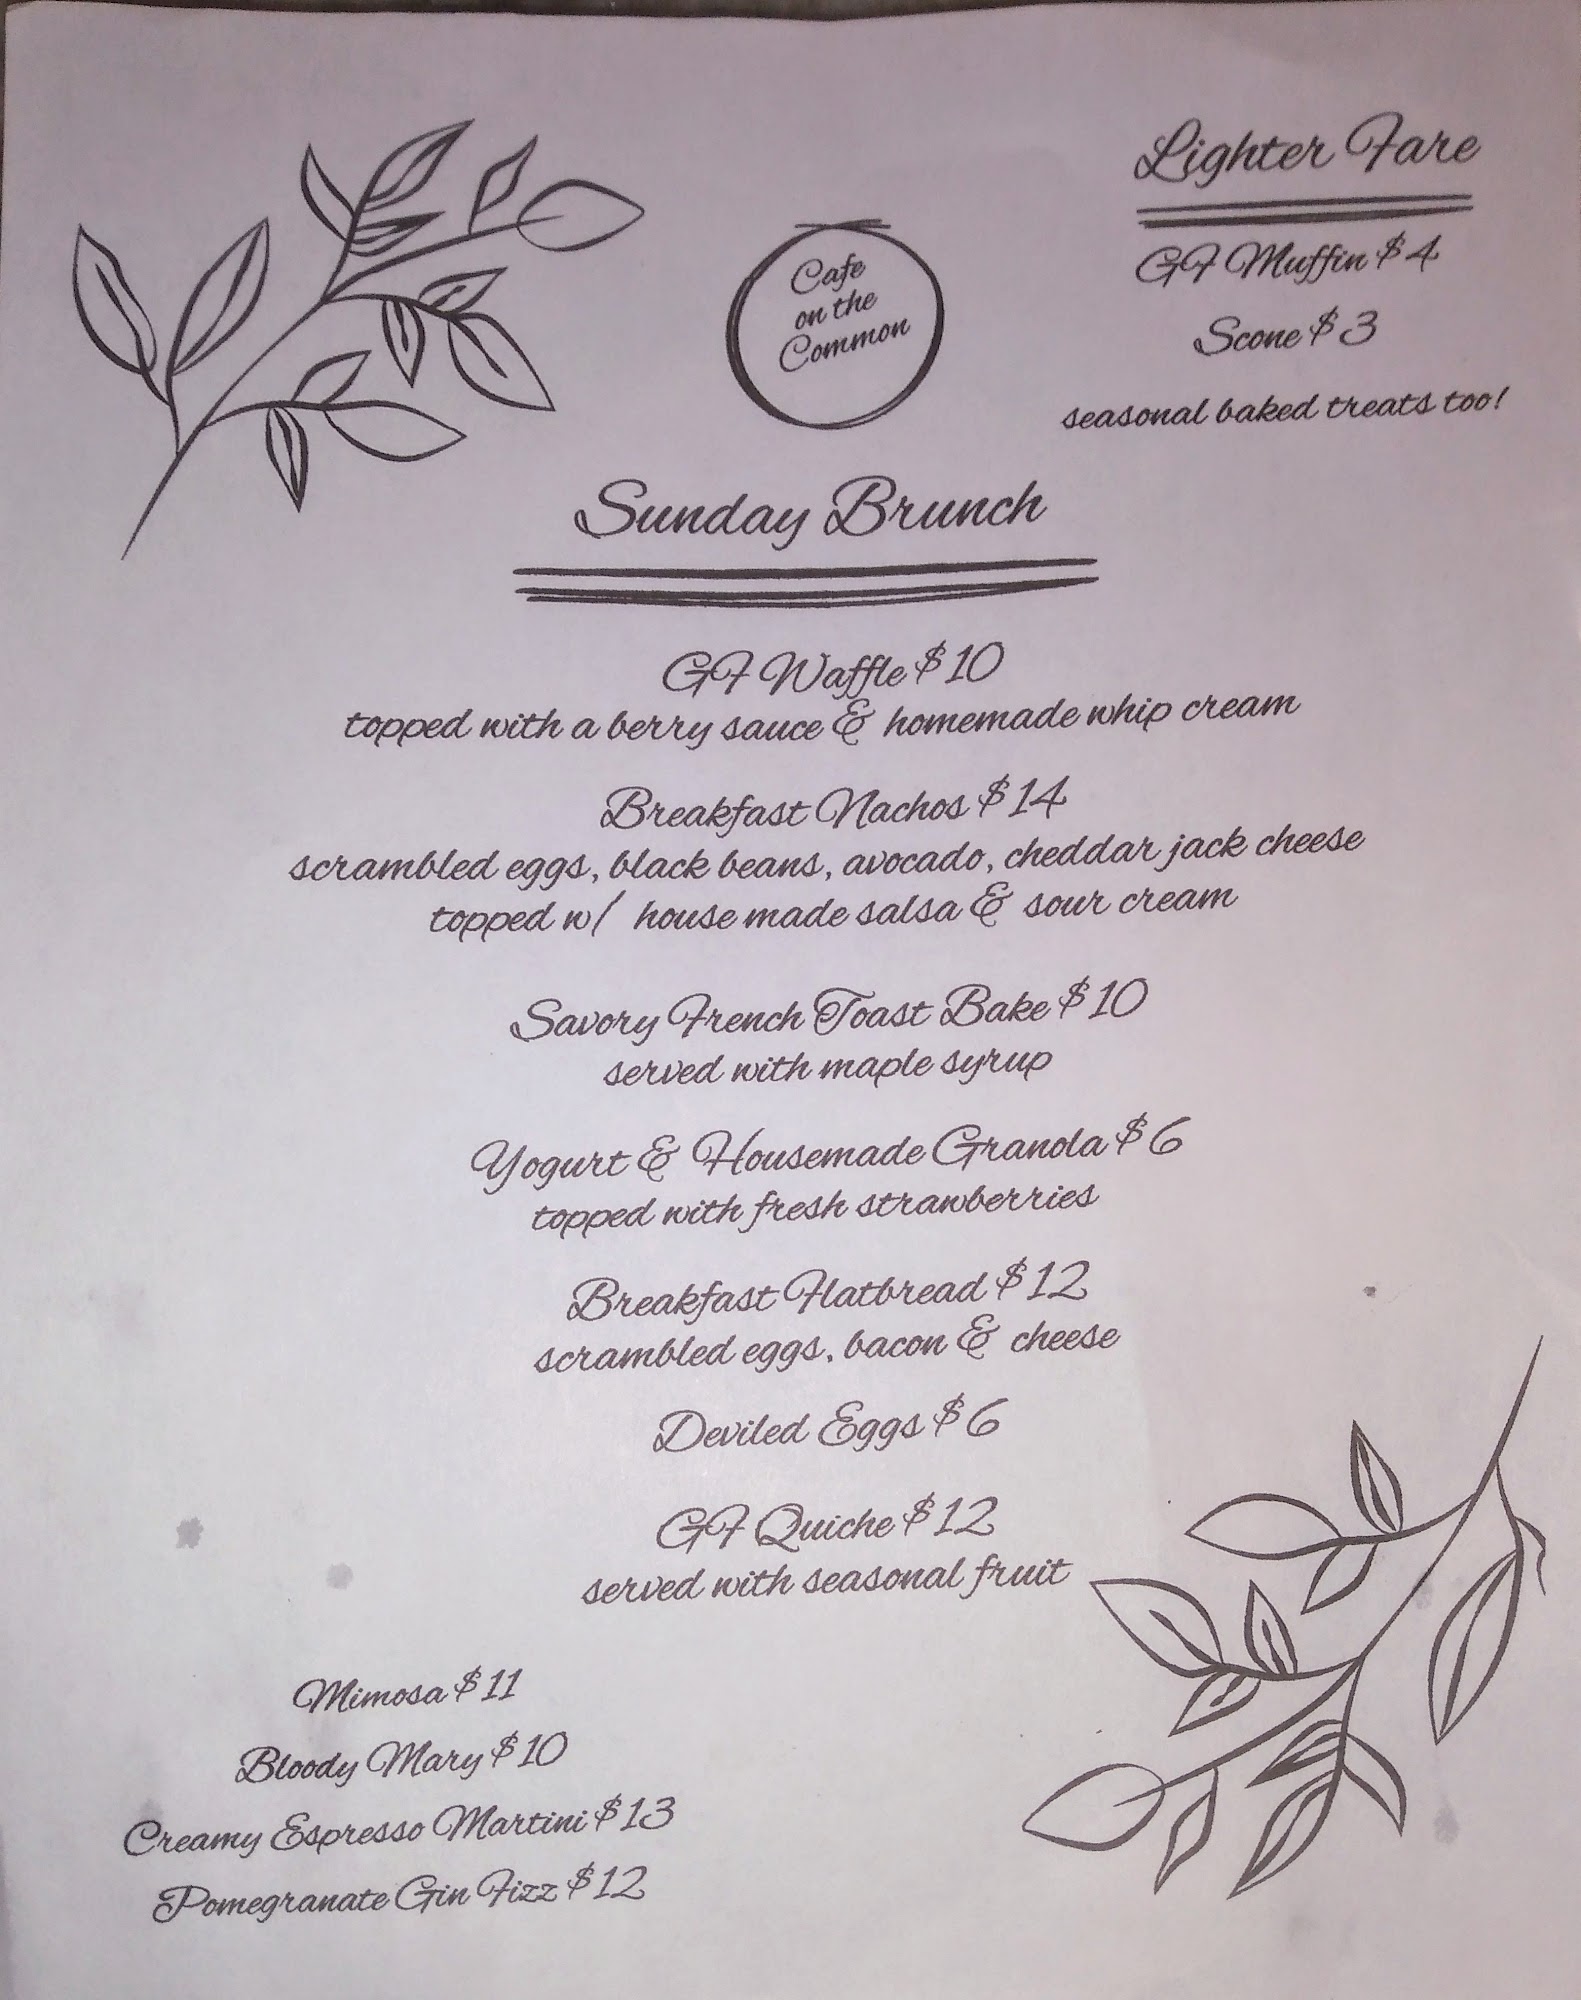 Lighter Fare
GF Muffin $4
Scone $3
seasonal baked treats too!
Cafe
on the
Common
Sunday Brunch
GF Waffle $10
topped with a berry sauce & homemade whip cream
Breakfast Nachos $14
scrambled eggs, black beans, avocado, cheddar jack cheese
topped w/ house made salsa & sour cream
Savory French Toast Bake $10
served with maple syrup
Yogurt & Housemade Granola $6
topped with fresh strawberries
Breakfast Flatbread $12
scrambled eggs, bacon & cheese
Deviled Eggs $6
GF Quiche $12
served with seasonal fruit
Mimosa $11
Bloody Mary $10
Creamy Espresso Martini $13
Pomegranate Gin Fizz $12